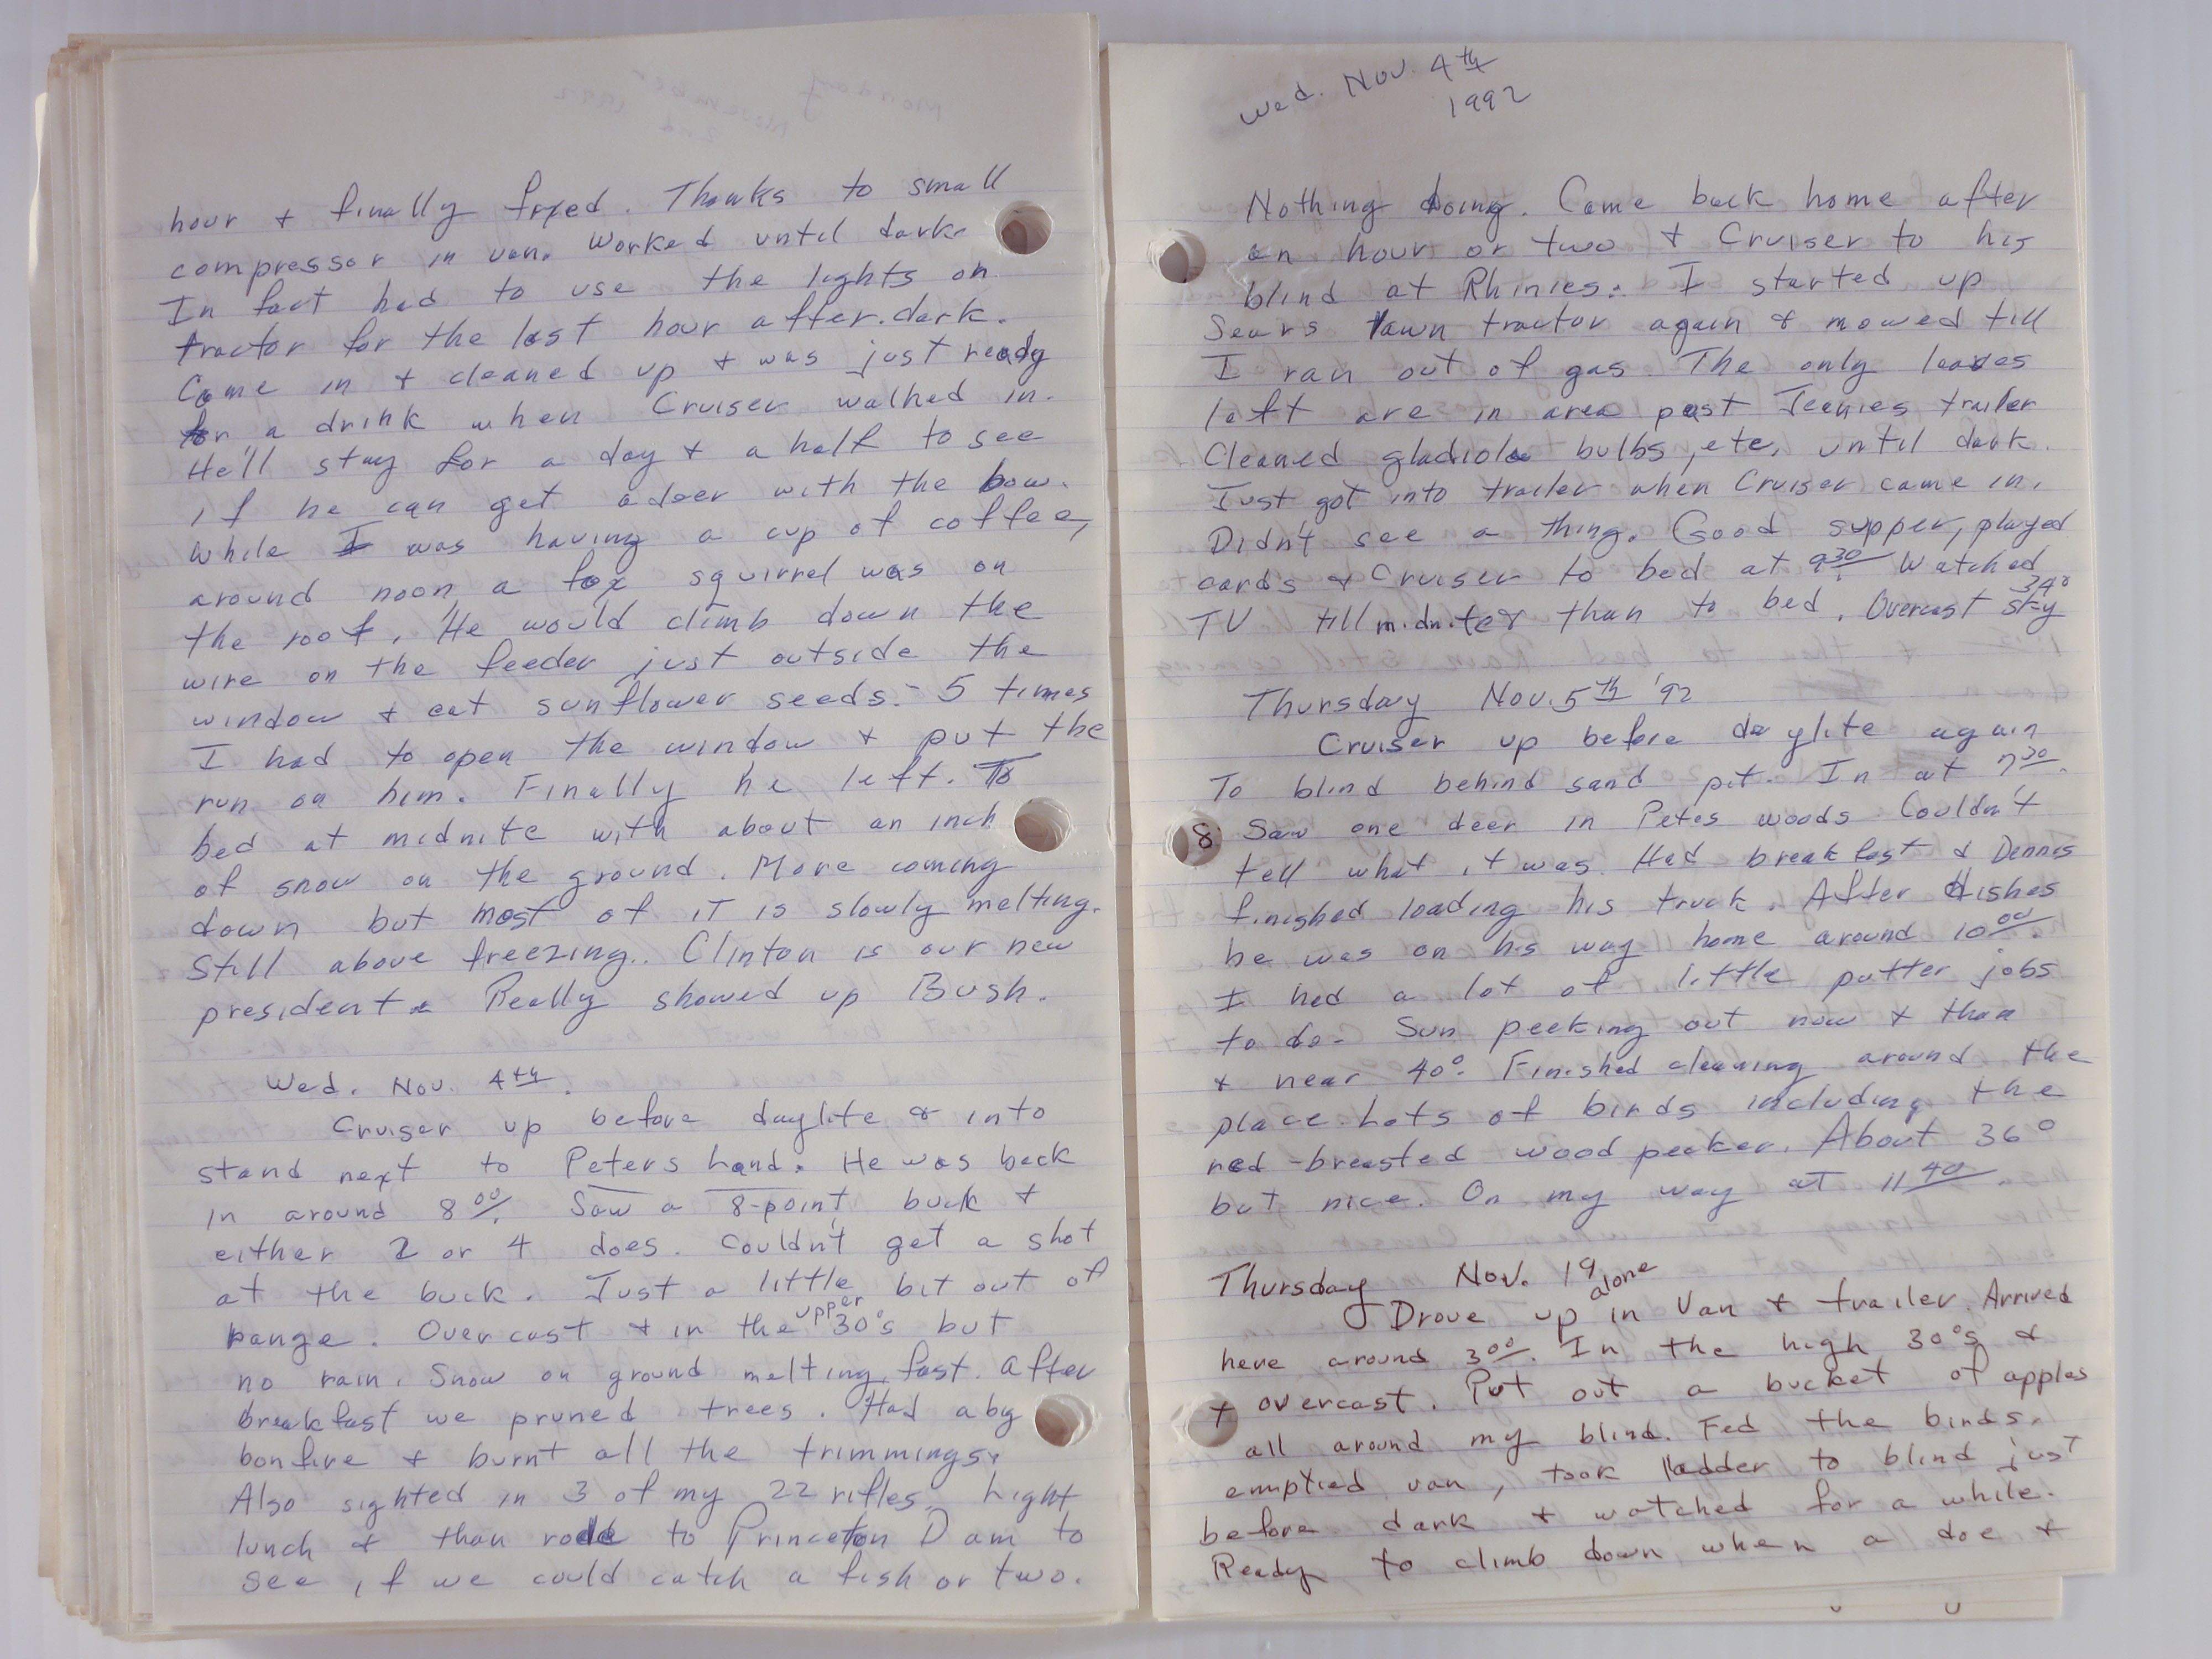 hour & finally fixed. Thanks to small
compressor in van. Worked until dark.
In fact had to use the lights on
tractor for the last hour after dark.
Came in & cleaned up & was just ready
for a drink when Cruiser walked in.
He'll stay for a day & a half to see
if he can get a deer with the bow.
While I was having a cup of coffee,
around noon a fox squirrel was on
the roof. He would climb down the
wire on the feeder just outside the
window & eat sunflower seeds. 5 times
I had to open the window & put the
run on him. Finally he left. To
bed at midnite with about an inch
of snow on the ground. More coming
down but most of it is slowly melting.
Still above freezing.. Clinton is our new
president. Really showed up Bush.
Wed. Nov. 4th.
Cruiser up before daylite & into
stand next to Peters land. He was back
in around 8:00. Saw a 8-point buck &
either 2 or 4 does. Couldn't get a shot
at the buck. Just a little bit out of
range. Overcast & in the upper 30°s but
no rain. Snow on ground melting fast. After
breakfast we pruned trees. Had a big
bonfire & burnt all the trimmings.
Also sighted in 3 of my 22 rifles. Light
lunch & than rode to Princeton Dam to
see if we could catch a fish or two.
Wed. Nov. 4th
1992
Nothing doing. Came back home after
an hour or two & Cruiser to his
blind at Rhinies. I started up
Sears lawn tractor again & mowed till
I ran out of gas. The only leaves
left are in area past Jeenies trailer
Cleaned gladiola bulbs, etc, until dark.
Just got into trailer when Cruiser came in.
Didn't see a thing. Good supper, played
cards & Cruiser to bed at 9:30 Watched
TV till midnite & than to bed. Overcast sky 34°
Thursday Nov. 5th '92
Cruiser up before daylite again
To blind behind sand pit. In at 7:30.
8 Saw one deer in Petes woods Couldn't
tell what it was. Had breakfast & Dennis
finished loading his truck. After dishes
he was on his way home around 10:00.
I had a lot of little putter jobs
to do. Sun peeking out now & than
& near 40°. Finished cleaning around the
place. Lots of birds including the
red-breasted woodpecker. About 36°
but nice. On my way at 11:40.
Thursday Nov. 19
Drove up alone in Van & trailer. Arrived
here around 3:00. In the high 30°s &
& overcast. Put out a bucket of apples
all around my blind. Fed the birds.
emptied van, took ladder to blind just
before dark & watched for a while.
Ready to climb down when a doe &